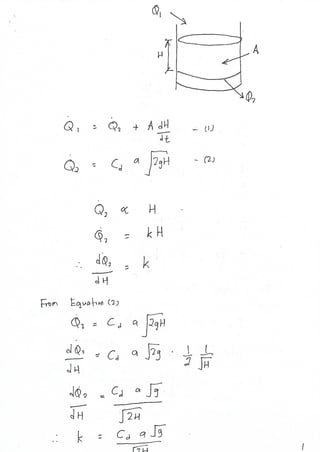 Q̇₁
H
A
Q̇₂
Q̇₁ = Q̇₂ + A dH/dt - (1)
Q̇₂ = C_d a √2gH - (2)
Q̇₂ ∝ H
Q̇₂ = kH
∴ dQ̇₂/dH = k
From Equation (2)
Q̇₂ = C_d a √2gH
dQ̇₂/dH = C_d a √2g · 1/2 1/√H
dQ̇₂/dH = C_d a √g / √2H
∴ k = C_d a √g / √2H
1